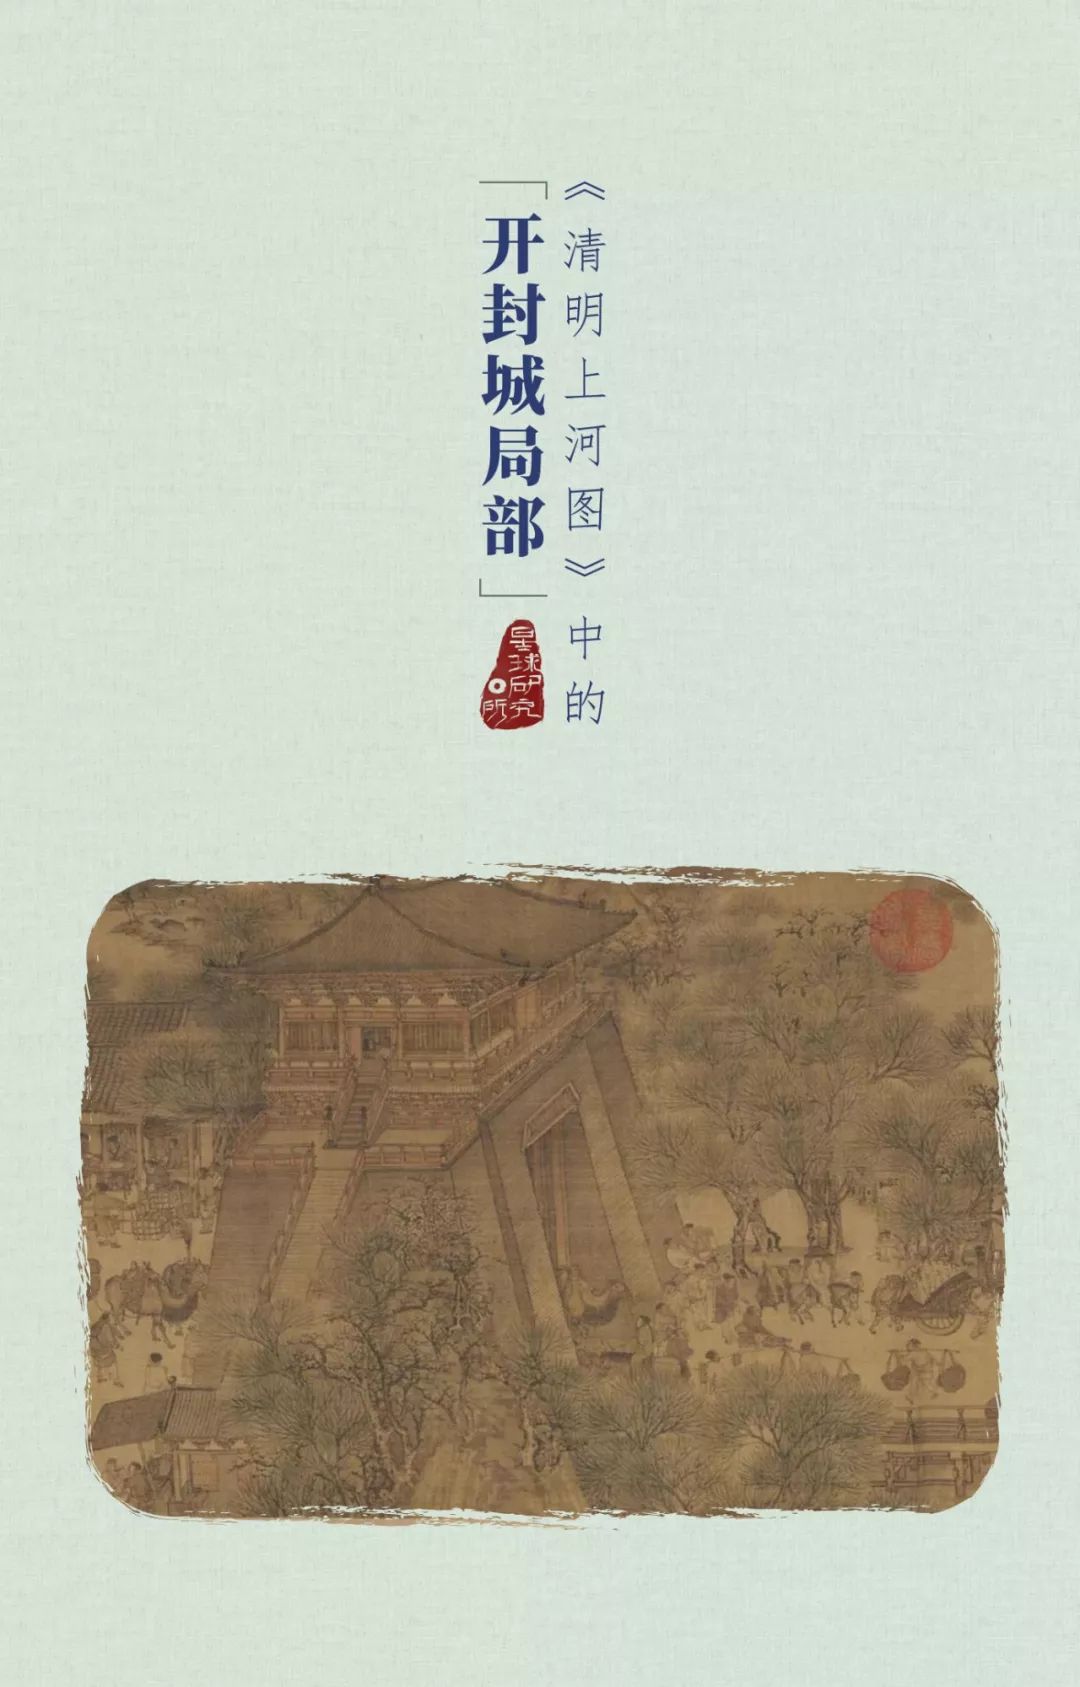 《清明上河图》中的
「开封城局部」
星球研究所